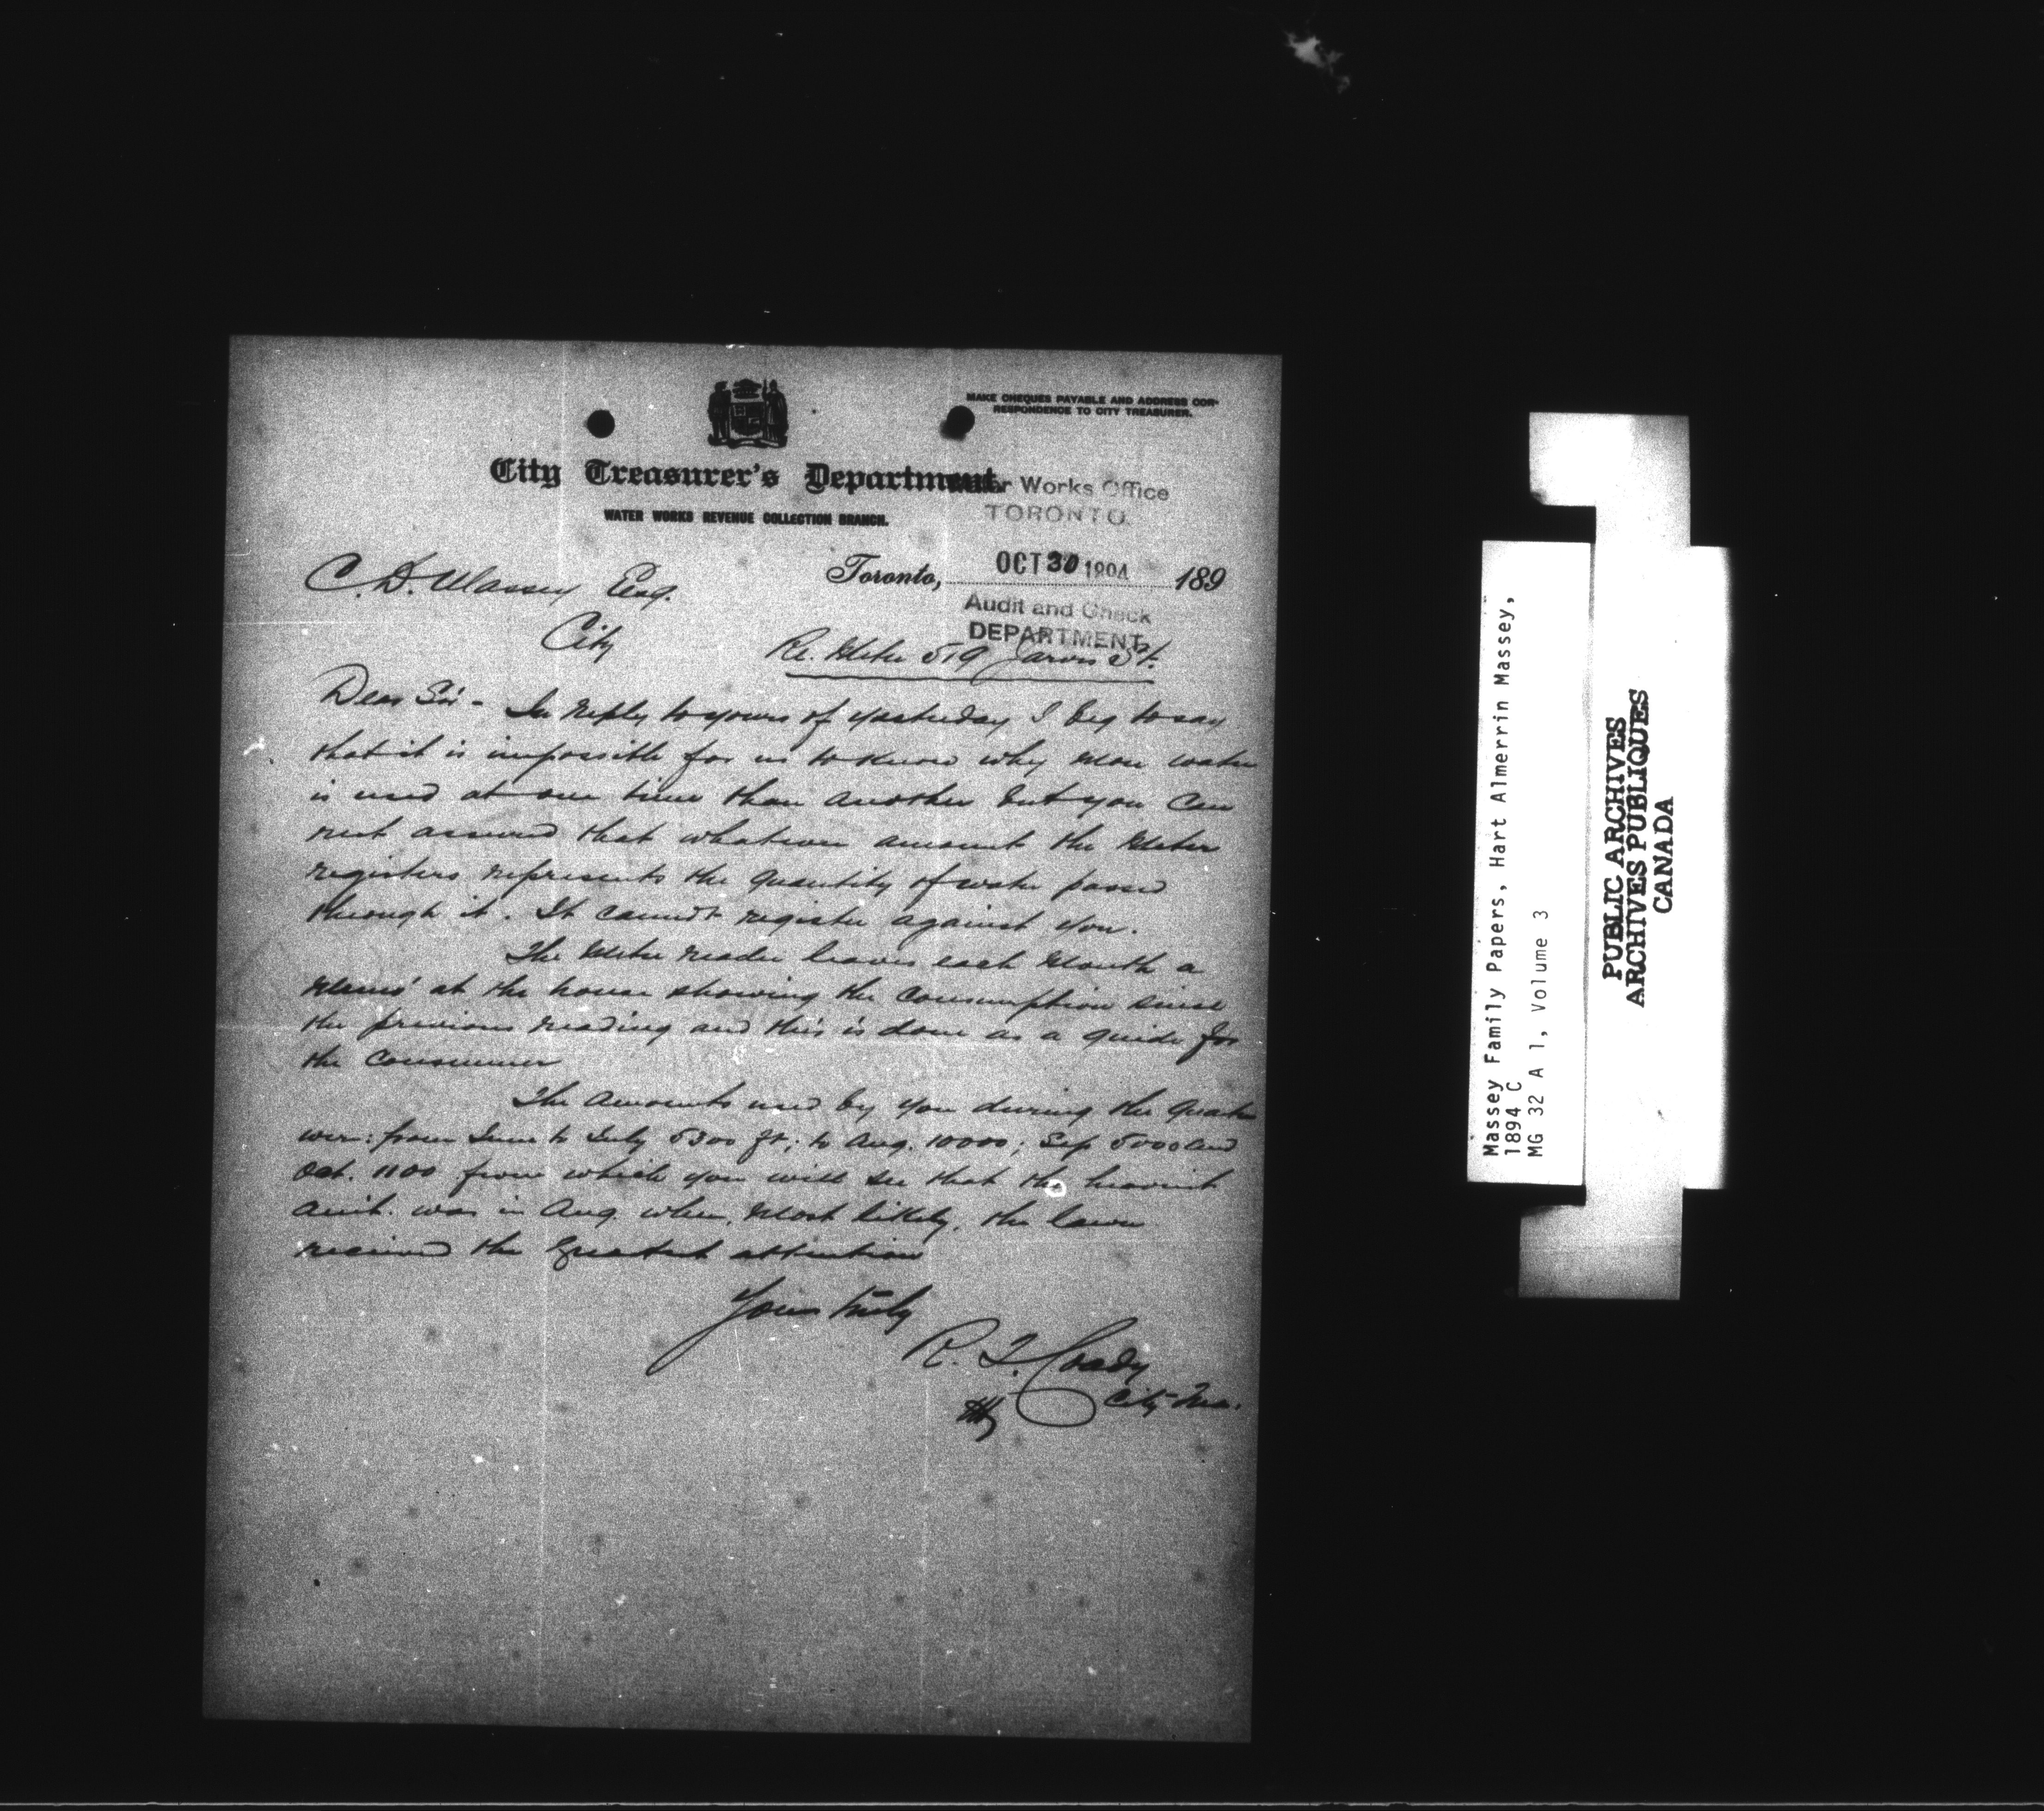 MAKE CHEQUES PAYABLE AND ADDRESS COR-
RESPONDENCE TO CITY TREASURER.
City Treasurer's Department
WATER WORKS REVENUE COLLECTION BRANCH.
Works Office
TORONTO
Toronto, OCT 30 1894 189
Audit and Check
DEPARTMENT
C. D. Massey Esq.
City
Re. Meter 519 Jarvis St.
Dear Sir - In reply to yours of yesterday I beg to say
that it is impossible for us to know why more water
is used at one time than another but you can
rest assured that whatever amount the Meter
registers represents the quantity of water passed
through it. It cannot register against you.
The Meter reader leaves each Month a
Memo' at the house showing the consumption since
the previous reading and this is done as a guide for
the Consumer
The Amounts used by you during the quarter
were: from June to July 5300 ft; to Aug. 10000; Sep 5000 and
Oct. 1100 from which you will see that the heaviest
amt. was in Aug. when, Most likely, the lawn
received the Greatest attention
Yours truly
R. T. Coady
City Trea.
Massey Family Papers, Hart Almerrin Massey,
1894 C
MG 32 A 1, Volume 3
PUBLIC ARCHIVES
ARCHIVES PUBLIQUES
CANADA